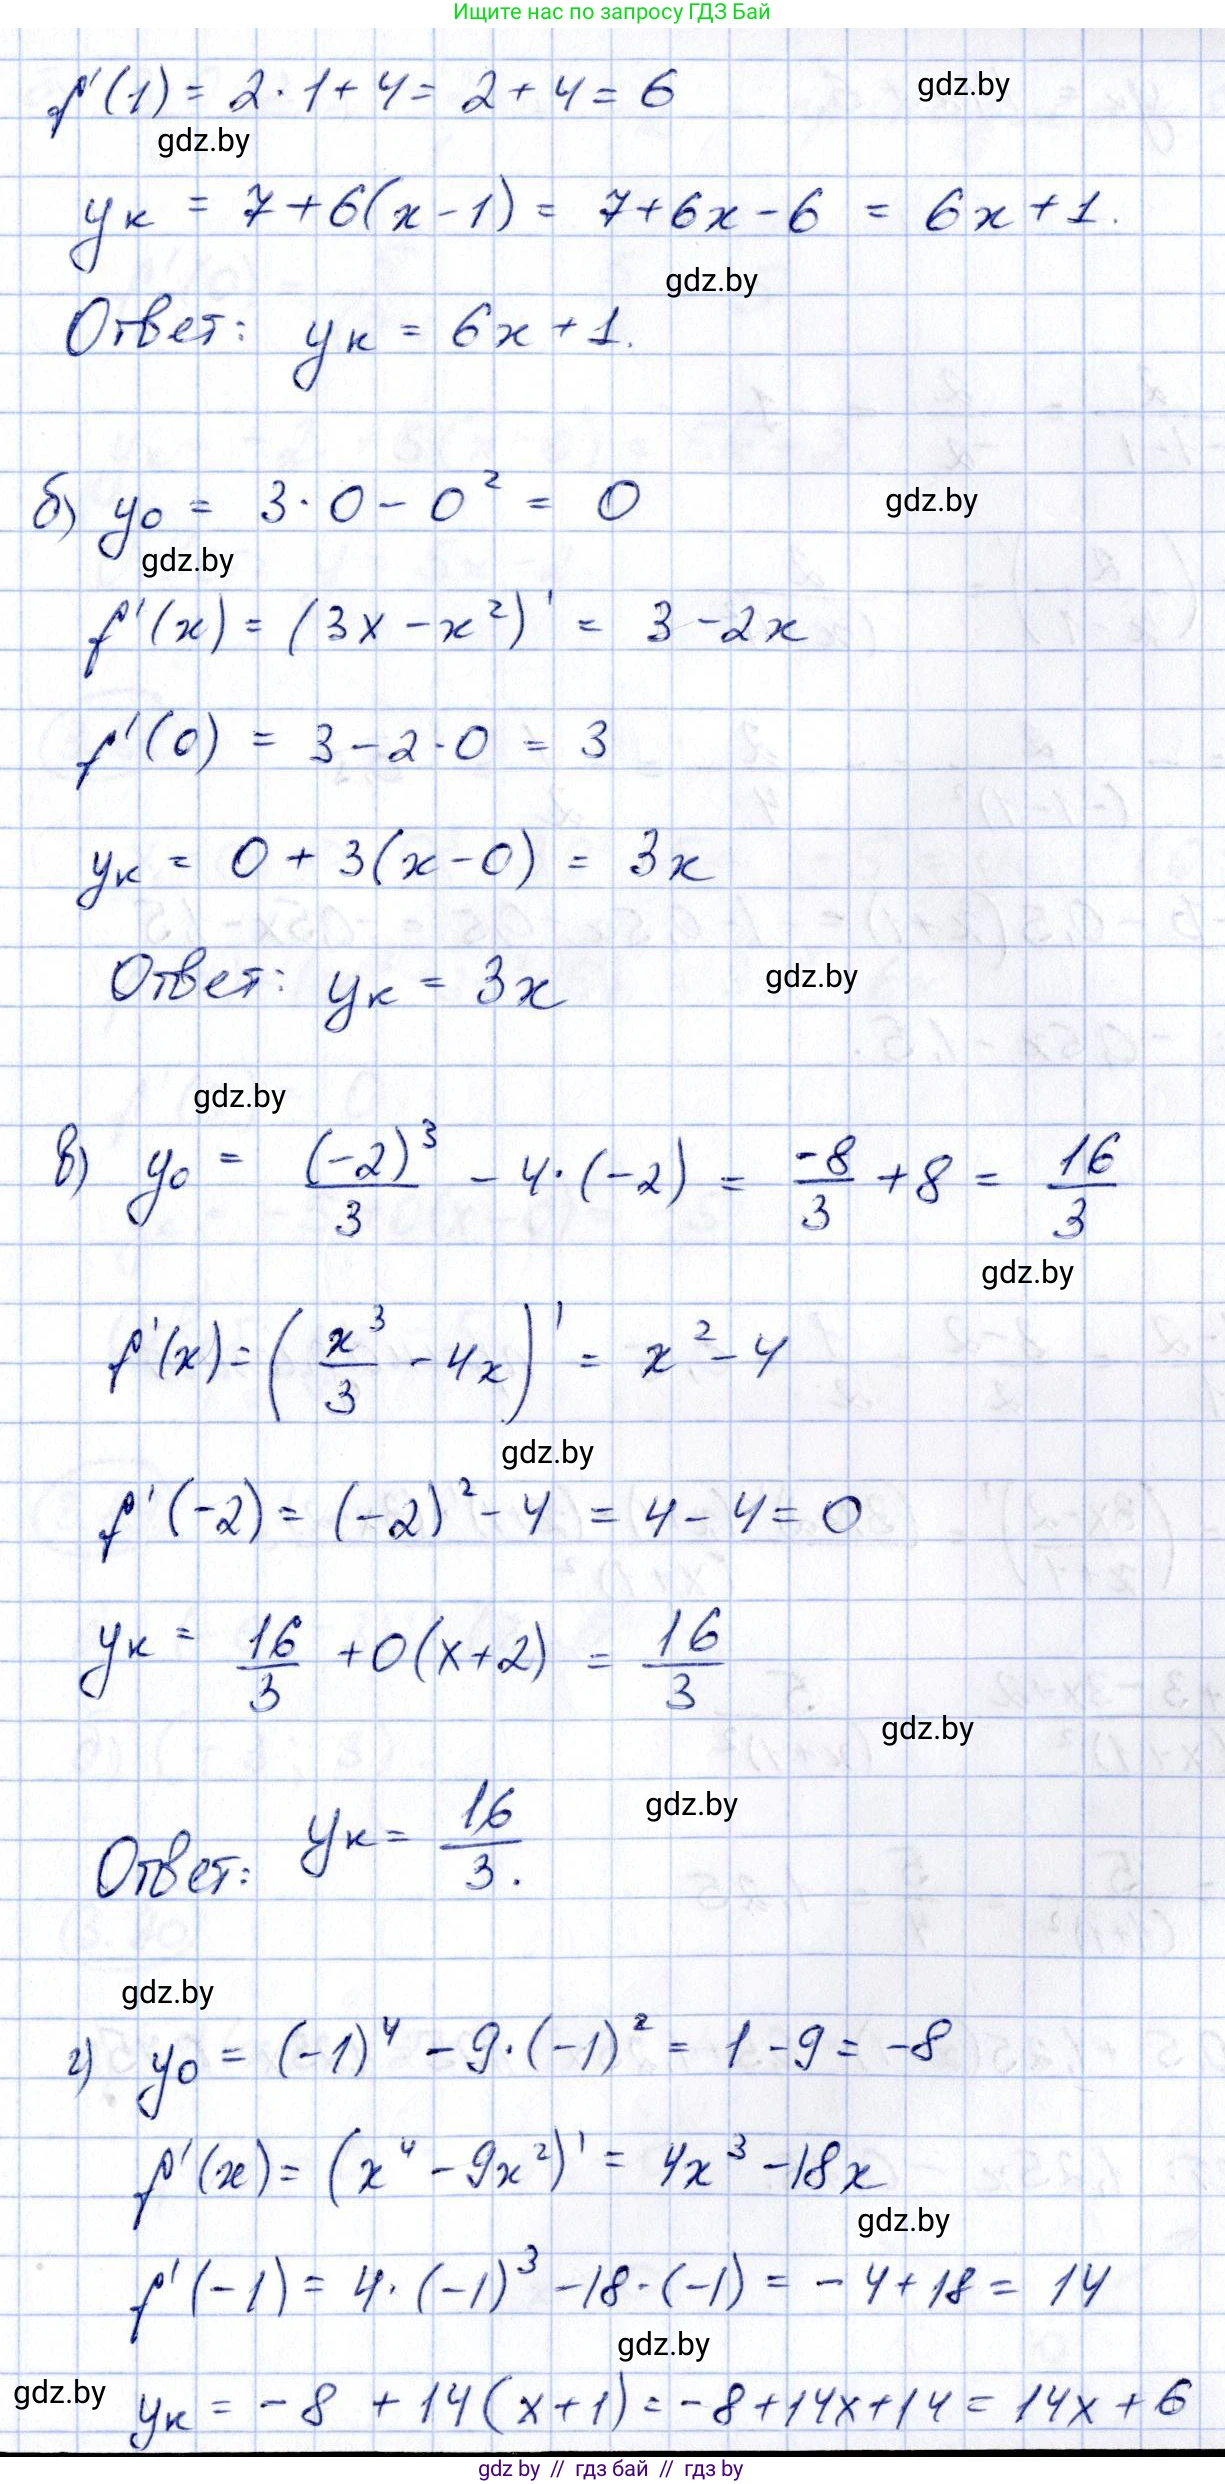 Ищите нас по запросу ГДЗ Бай
f'(1) = 2 · 1 + 4 = 2 + 4 = 6
gdz.by
gdz.by
yк = 7 + 6(x - 1) = 7 + 6x - 6 = 6x + 1.
gdz.by
Ответ: yк = 6x + 1.
б) y₀ = 3 · 0 - 0² = 0
gdz.by
gdz.by
f'(x) = (3x - x²)' = 3 - 2x
f'(0) = 3 - 2 · 0 = 3
yк = 0 + 3(x - 0) = 3x
Ответ: yк = 3x
gdz.by
gdz.by
в) y₀ = (-2)³/3 - 4 · (-2) = -8/3 + 8 = 16/3
gdz.by
f'(x) = (x³/3 - 4x)' = x² - 4
gdz.by
f'(-2) = (-2)² - 4 = 4 - 4 = 0
yк = 16/3 + 0(x + 2) = 16/3
gdz.by
gdz.by
Ответ: yк = 16/3.
gdz.by
г) y₀ = (-1)⁴ - 9 · (-1)² = 1 - 9 = -8
f'(x) = (x⁴ - 9x²)' = 4x³ - 18x
gdz.by
f'(-1) = 4 · (-1)³ - 18 · (-1) = -4 + 18 = 14
gdz.by
gdz.by
yк = -8 + 14(x + 1) = -8 + 14x + 14 = 14x + 6
gdz.by // гдз бай // гдз by